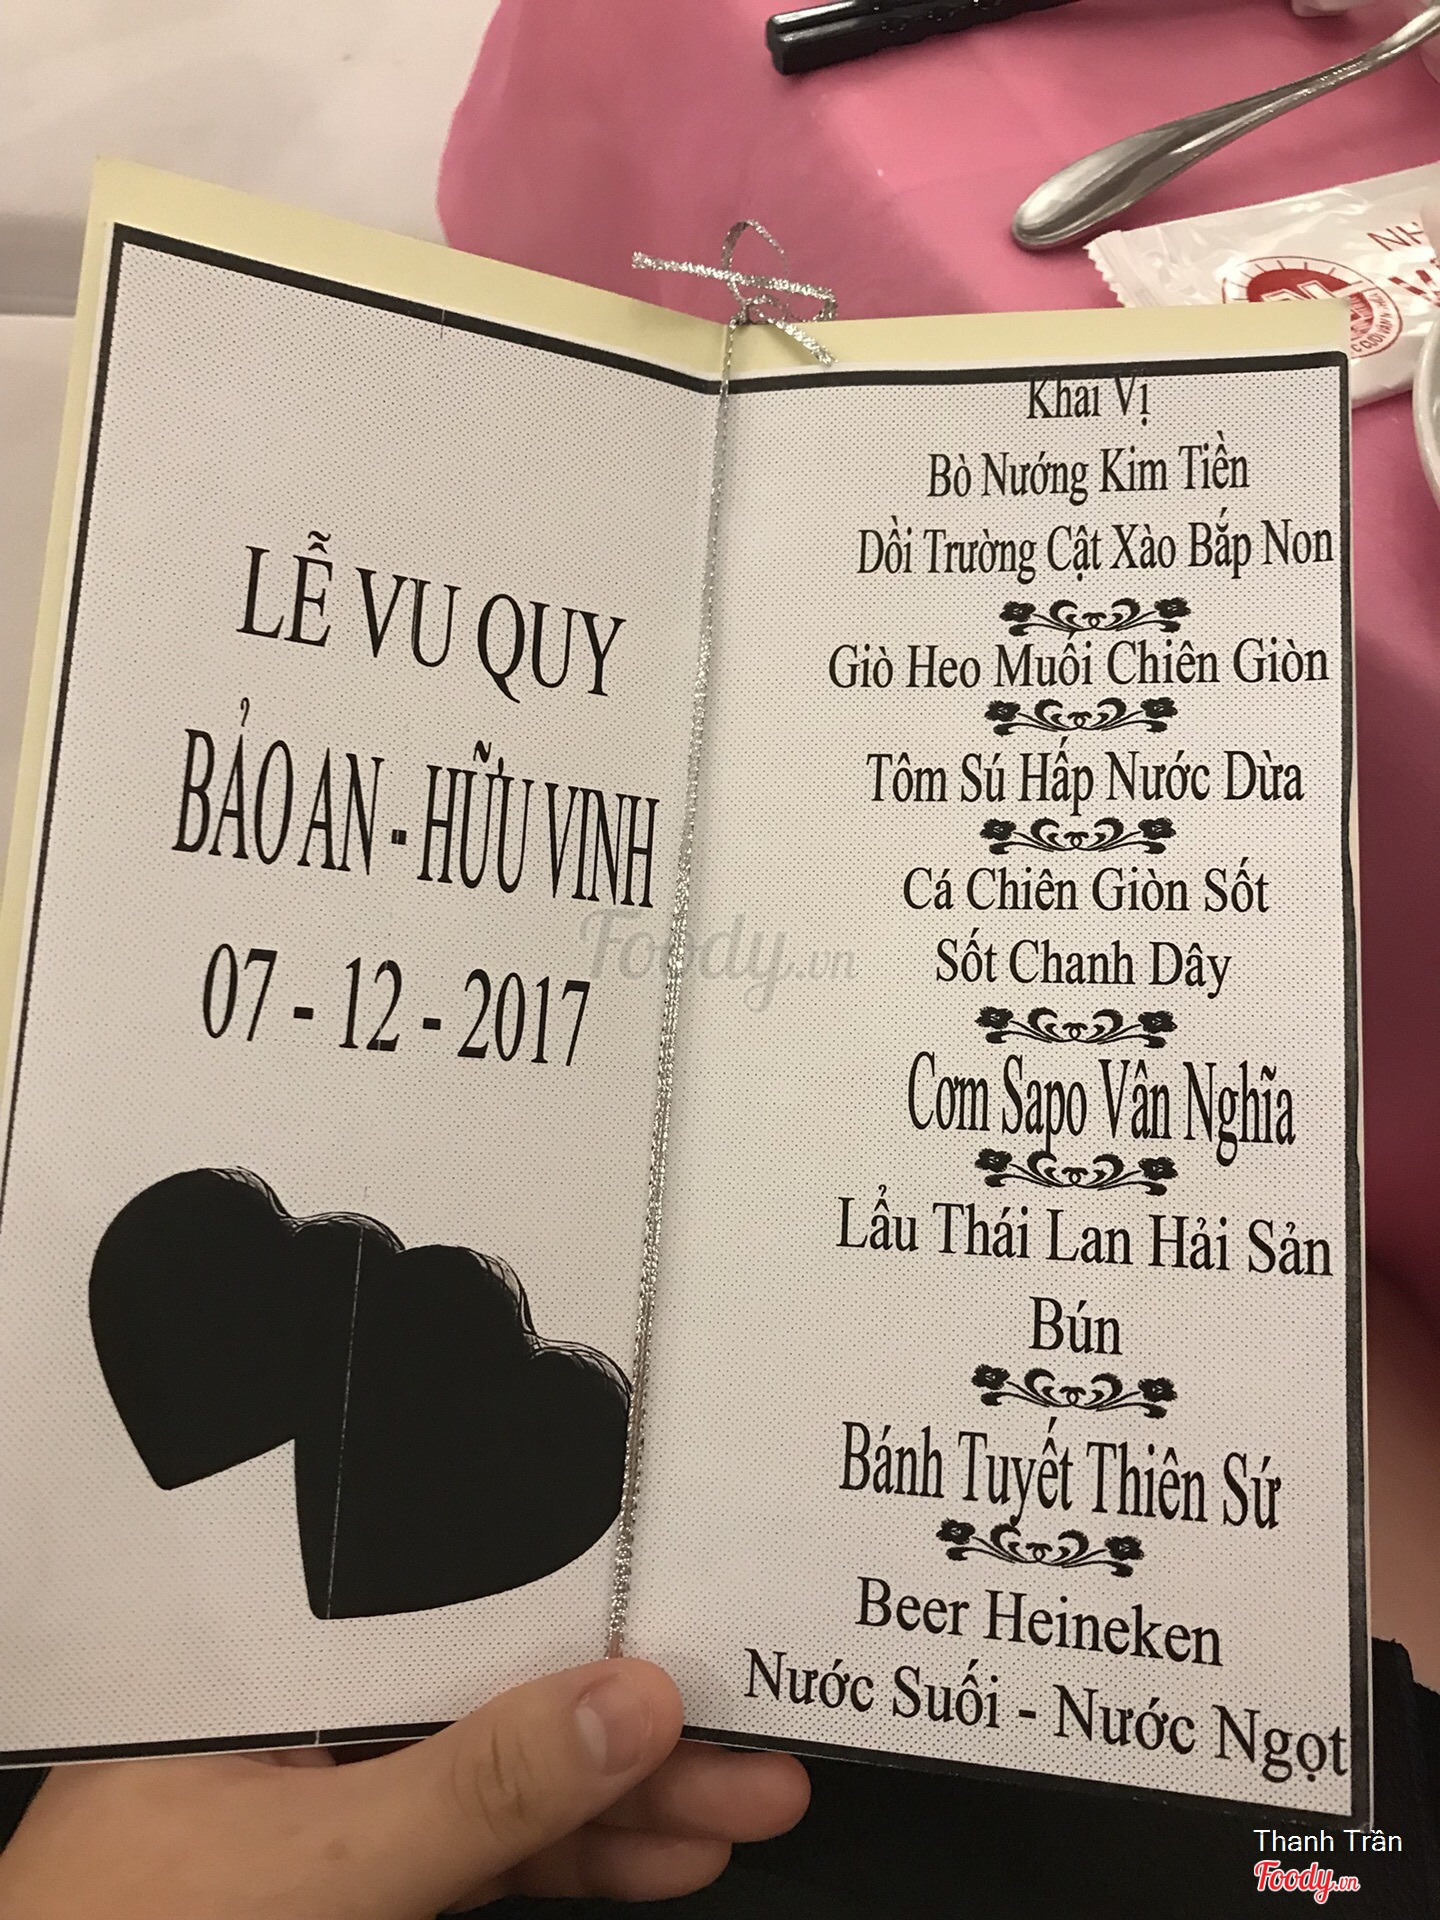 LỄ VU QUY
BẢO AN - HỮU VINH
07 - 12 - 2017
Khai Vị
Bò Nướng Kim Tiền
Dồi Trường Cật Xào Bắp Non
Giò Heo Muối Chiên Giòn
Tôm Sú Hấp Nước Dừa
Cá Chiên Giòn Sốt
Sốt Chanh Dây
Cơm Sapo Vân Nghĩa
Lẩu Thái Lan Hải Sản
Bún
Bánh Tuyết Thiên Sứ
Beer Heineken
Nước Suối - Nước Ngọt
Foody.vn
Thanh Trần
Foody.vn